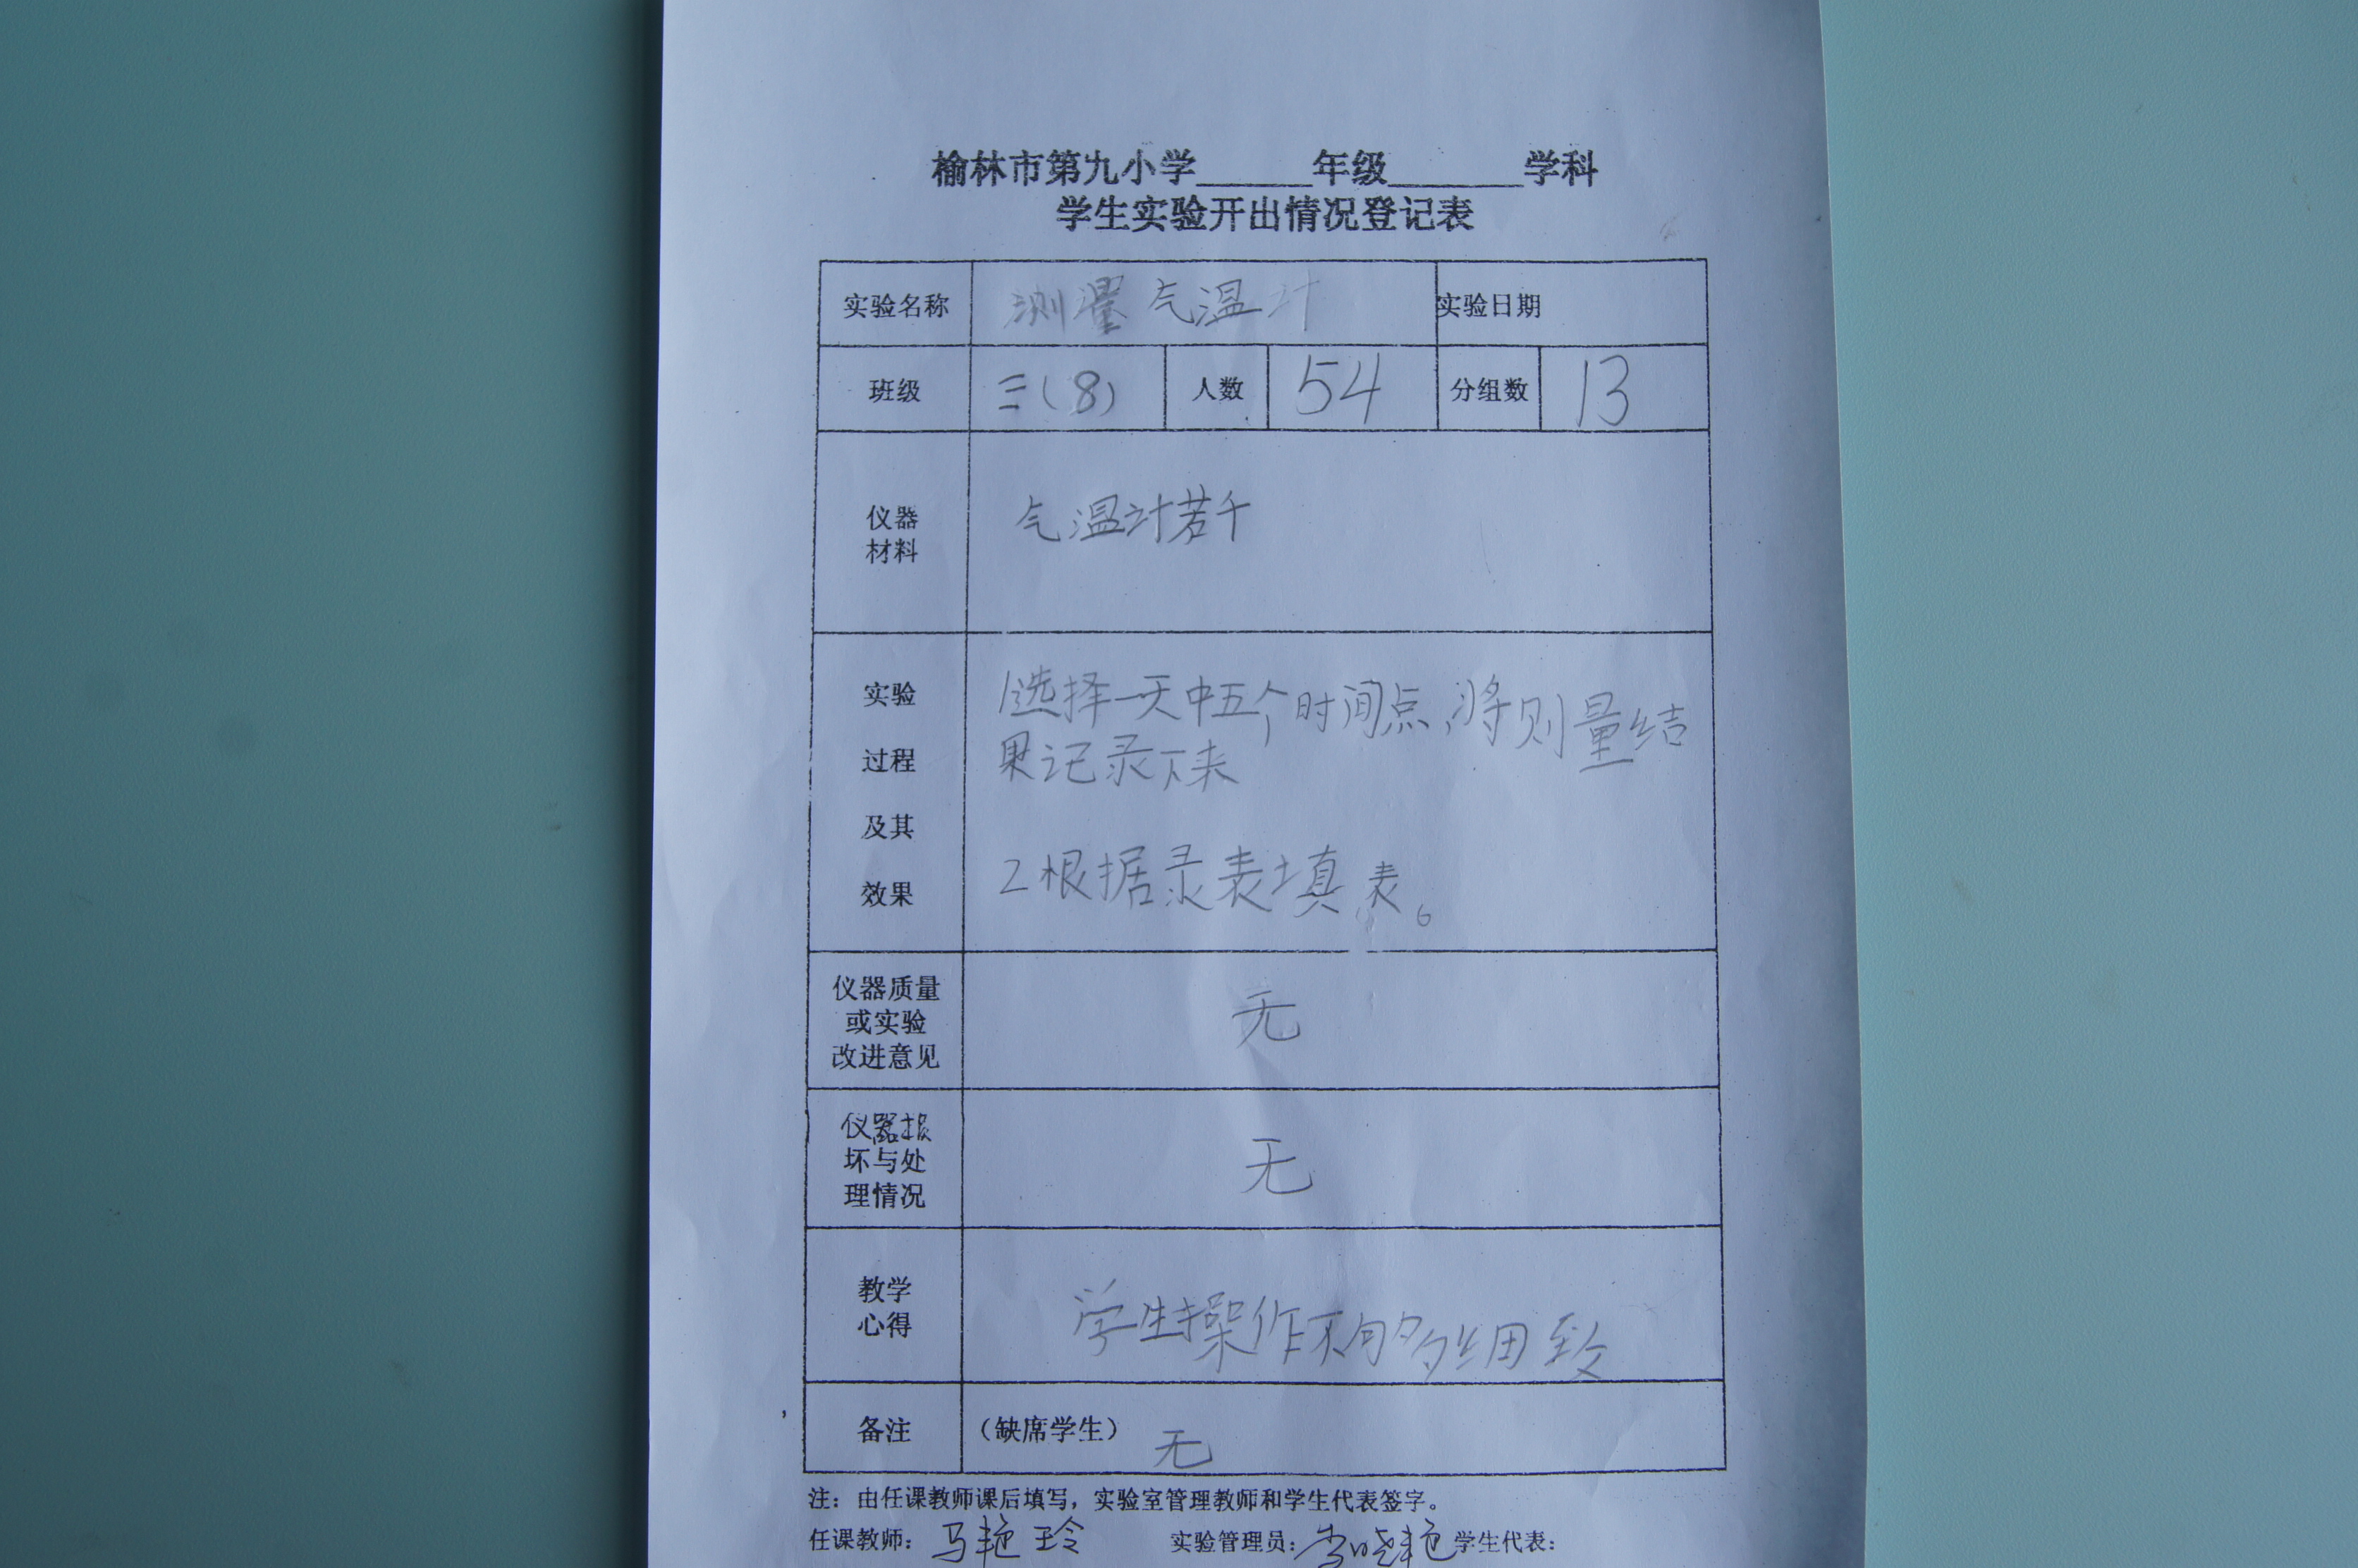 榆林市第九小学______年级_______学科
学生实验开出情况登记表
实验名称 测量气温计 实验日期
班级 三(8) 人数 54 分组数 13
仪器
材料
气温计若干
实验
过程
及其
效果
1选择一天中五个时间点,将则量结
果记录下来
2根据录表填表。
仪器质量
或实验
改进意见
无
仪器损
坏与处
理情况
无
教学
心得
学生操作不够细致
备注 (缺席学生) 无
注:由任课教师课后填写,实验室管理教师和学生代表签字。
任课教师:马艳玲 实验管理员:李晓艳 学生代表: